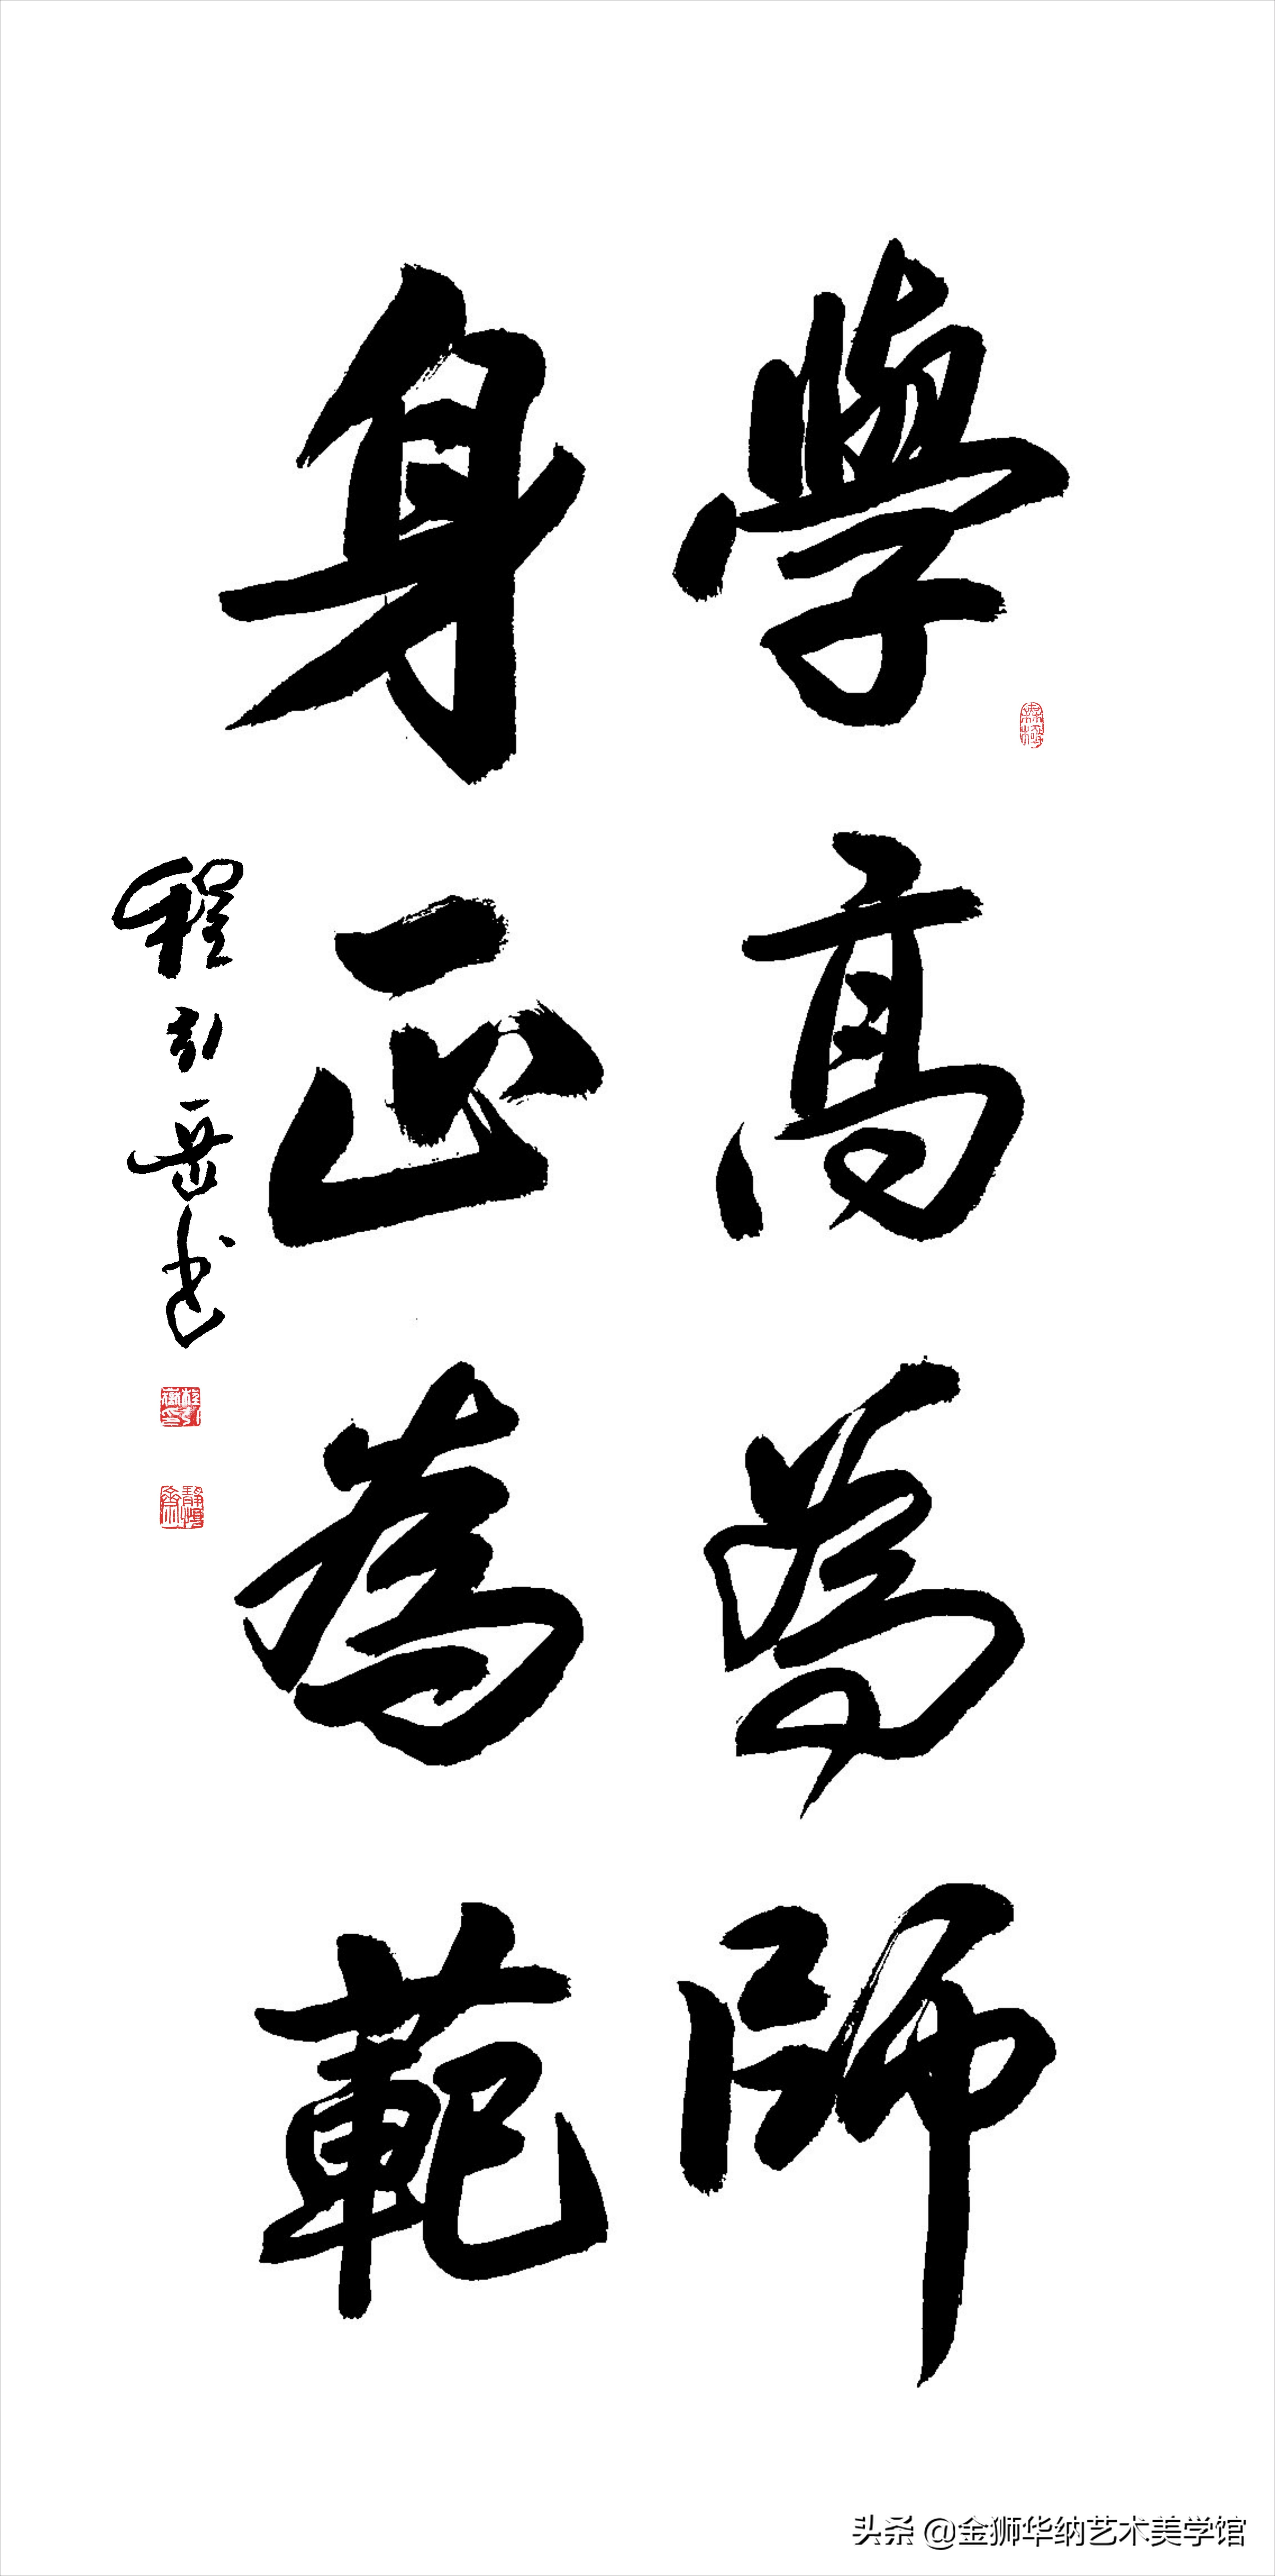 學高為師
身正為範
程引
书
头条 @金狮华纳艺术美学馆